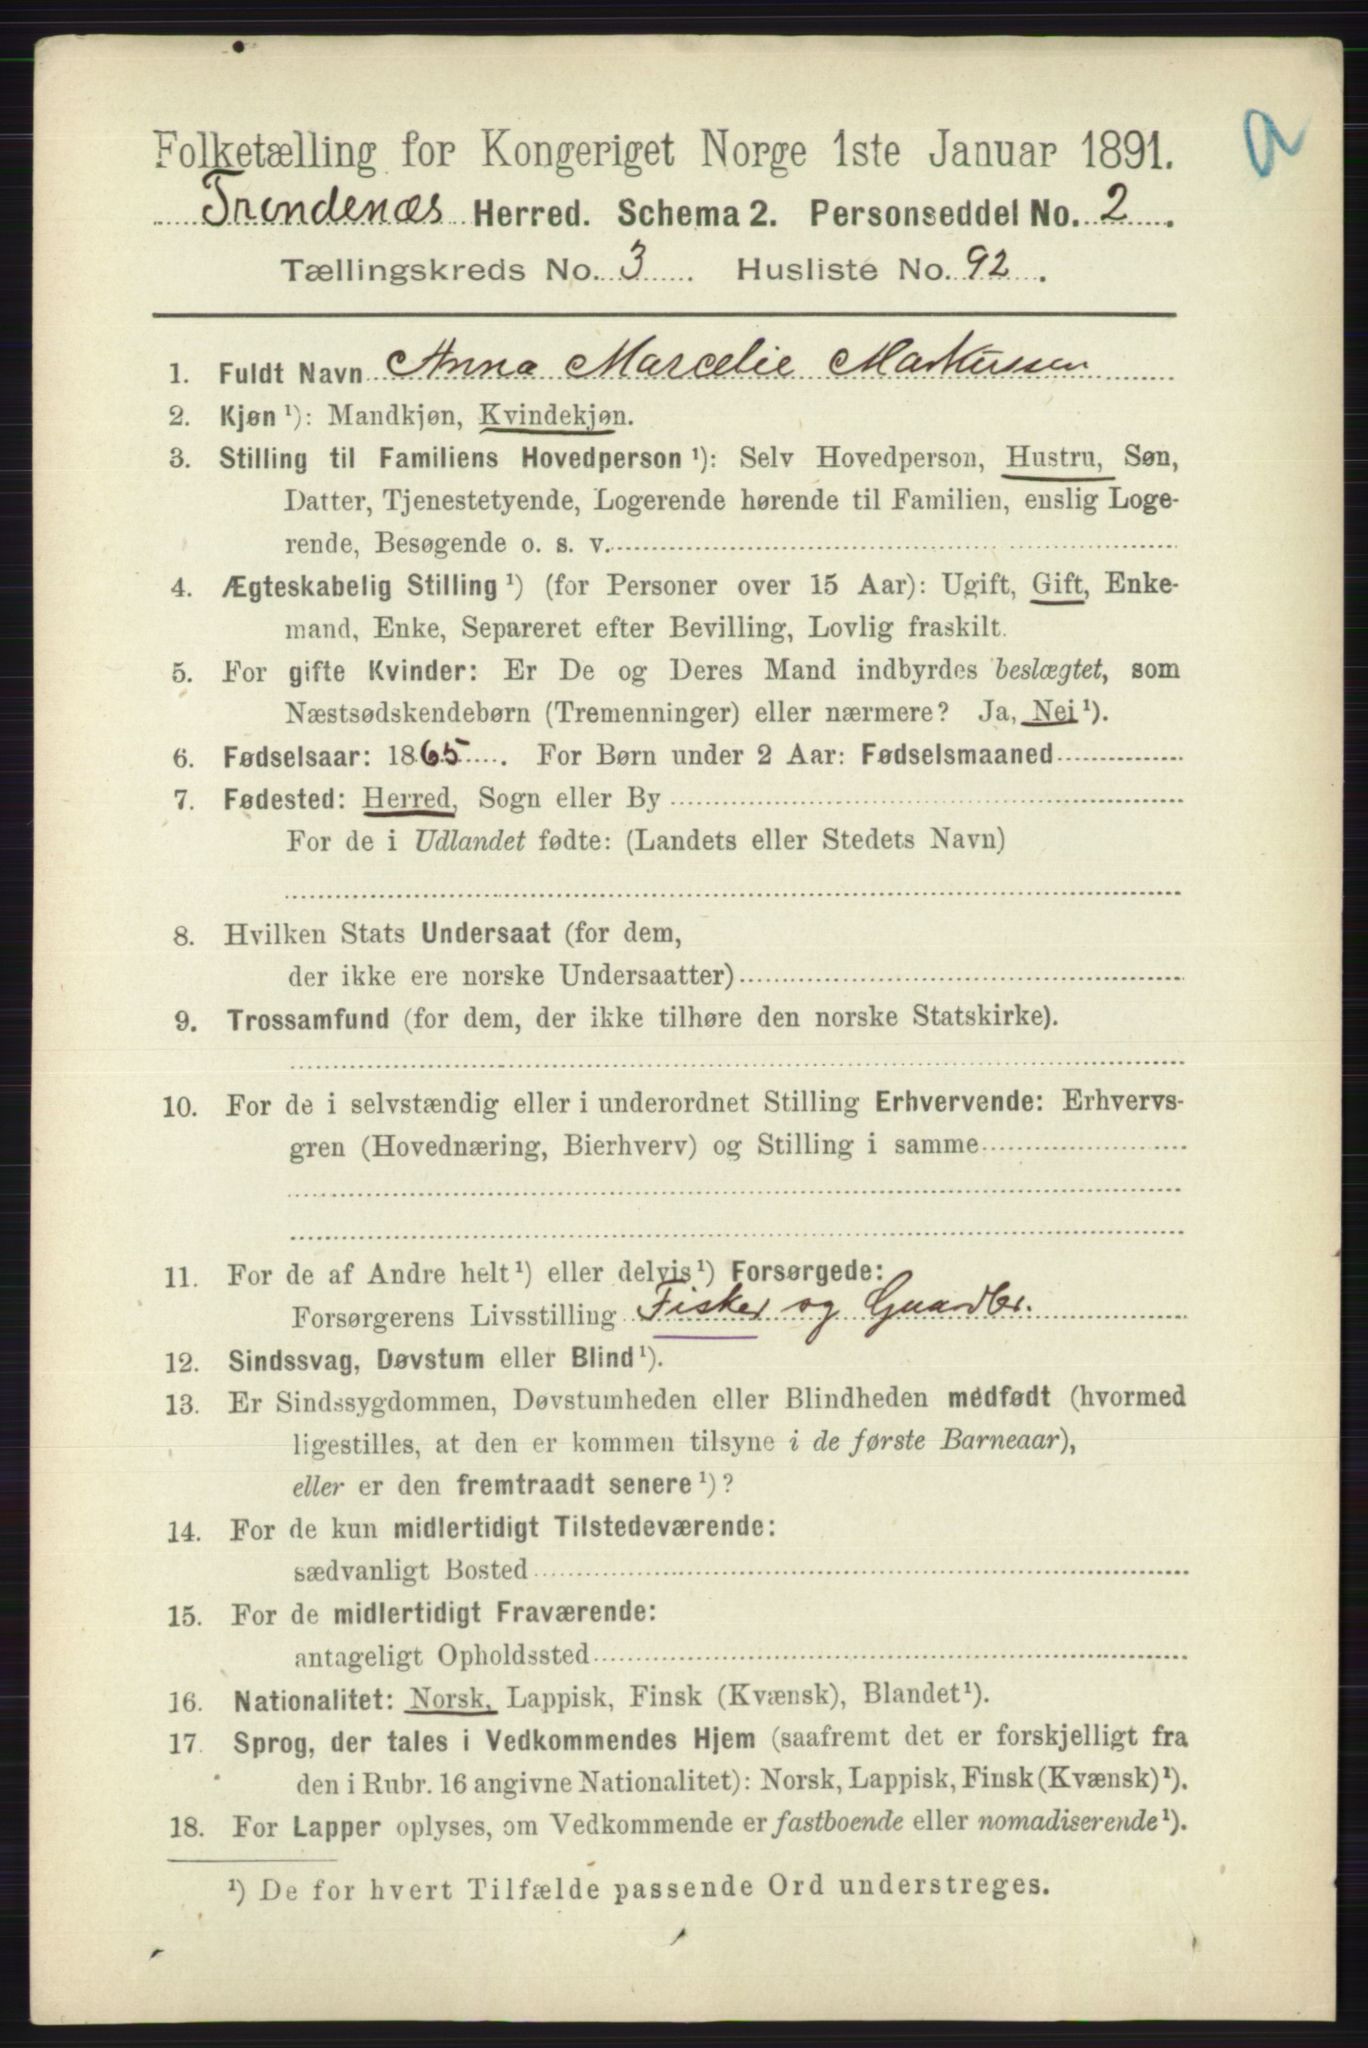 Folketælling for Kongeriget Norge 1ste Januar 1891.
a
Trondenæs Herred. Schema 2. Personseddel No. 2.
Tællingskreds No. 3. Husliste No. 92.
1. Fuldt Navn Anna Marcelie Markussen
2. Kjøn ¹): Mandkjøn, Kvindekjøn.
3. Stilling til Familiens Hovedperson ¹): Selv Hovedperson, Hustru, Søn,
Datter, Tjenestetyende, Logerende hørende til Familien, enslig Loge-
rende, Besøgende o. s. v.
4. Ægteskabelig Stilling ¹) (for Personer over 15 Aar): Ugift, Gift, Enke-
mand, Enke, Separeret efter Bevilling, Lovlig fraskilt.
5. For gifte Kvinder: Er De og Deres Mand indbyrdes beslægtet, som
Næstsødskendebørn (Tremenninger) eller nærmere? Ja, Nei ¹).
6. Fødselsaar: 1865. For Børn under 2 Aar: Fødselsmaaned
7. Fødested: Herred, Sogn eller By
For de i Udlandet fødte: (Landets eller Stedets Navn)
8. Hvilken Stats Undersaat (for dem,
der ikke ere norske Undersaatter)
9. Trossamfund (for dem, der ikke tilhøre den norske Statskirke).
10. For de i selvstændig eller i underordnet Stilling Erhvervende: Erhvervs-
gren (Hovednæring, Bierhverv) og Stilling i samme
11. For de af Andre helt ¹) eller delvis ¹) Forsørgede:
Forsørgerens Livsstilling Fisker og Gaardbr.
12. Sindssvag, Døvstum eller Blind ¹).
13. Er Sindssygdommen, Døvstumheden eller Blindheden medfødt (hvormed
ligestilles, at den er kommen tilsyne i de første Barneaar),
eller er den fremtraadt senere ¹)?
14. For de kun midlertidigt Tilstedeværende:
sædvanligt Bosted
15. For de midlertidigt Fraværende:
antageligt Opholdssted
16. Nationalitet: Norsk, Lappisk, Finsk (Kvænsk), Blandet ¹).
17. Sprog, der tales i Vedkommendes Hjem (saafremt det er forskjelligt fra
den i Rubr. 16 angivne Nationalitet): Norsk, Lappisk, Finsk (Kvænsk) ¹).
18. For Lapper oplyses, om Vedkommende er fastboende eller nomadiserende ¹).
¹) De for hvert Tilfælde passende Ord understreges.